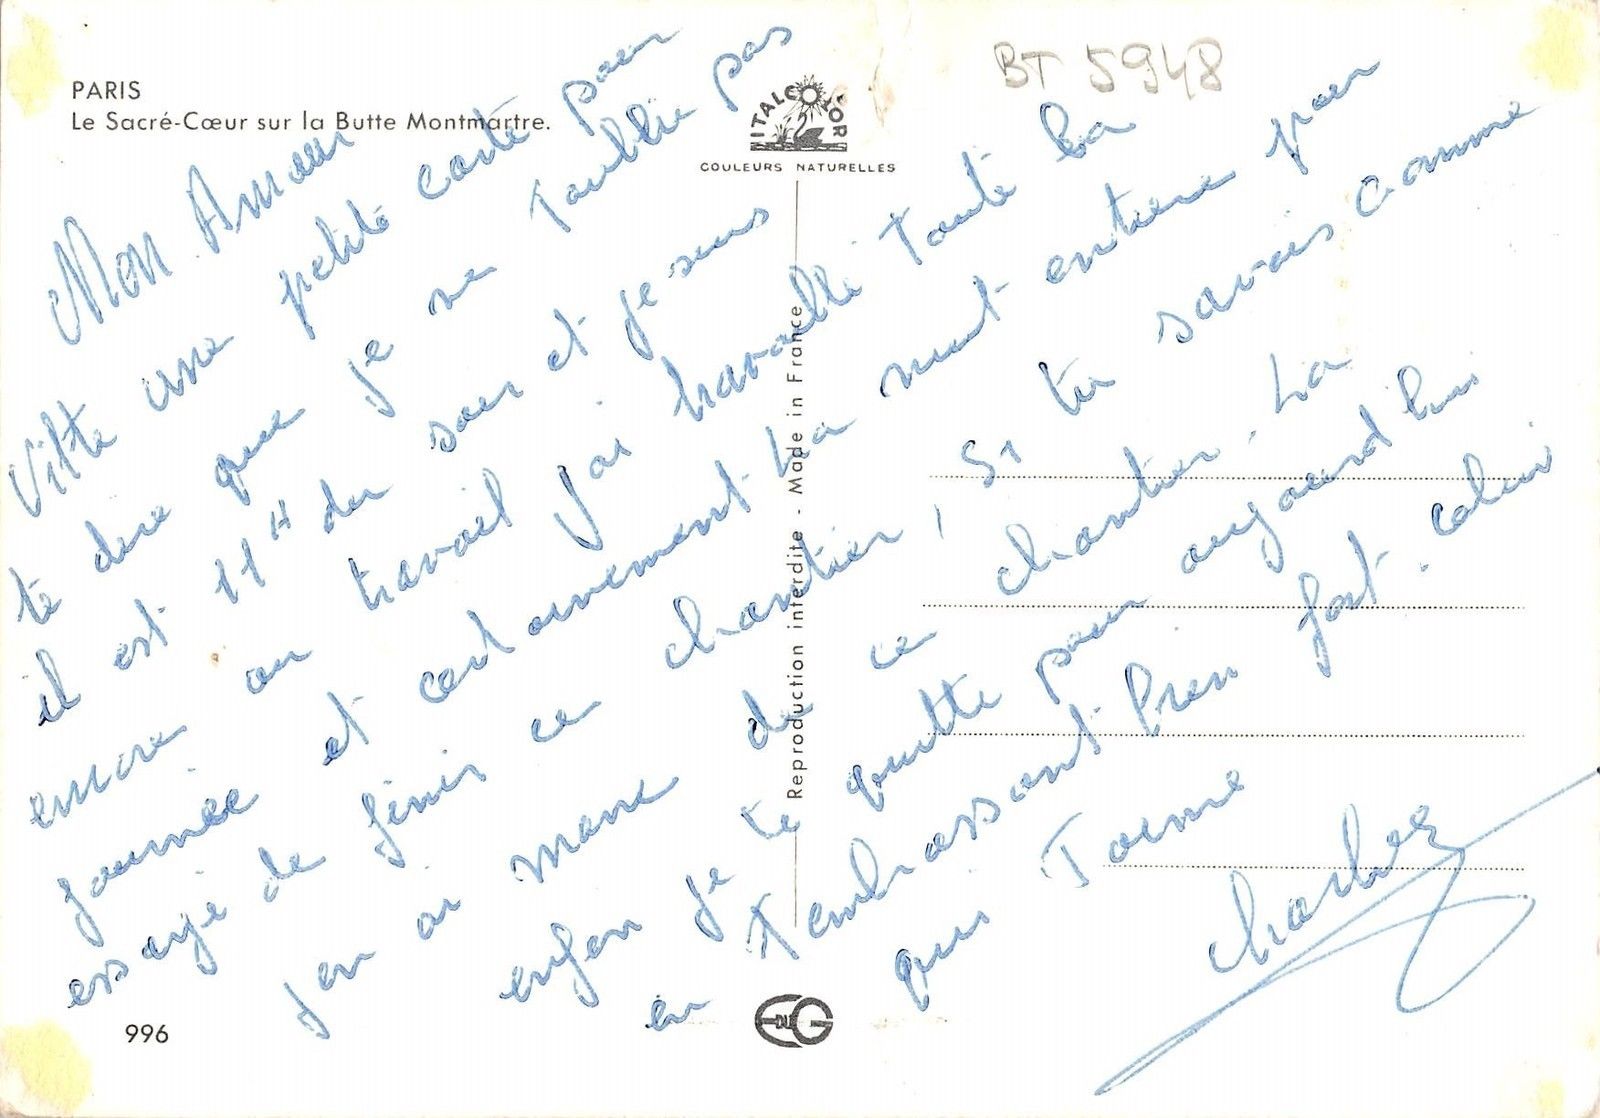 PARIS
Le Sacré-Cœur sur la Butte Montmartre.
ITALCOLOR
COULEURS NATURELLES
BT 5948
Mon Amour
Vitte une petite carte pour
te dire que je ne Toublie pas
il est 11H du soir et je suis
encore au travail Jai travaillé Toute la
journée et certainement La nuit entiere pour
essayé de finir ce chantier, Si tu savais comme
Jen ai mare de ce chantier. La
enfin Je te quitte pour aujourd hui
en Tembrassant bien fort. celui
qui Taime
Charles
Reproduction interdite - Made in France
996